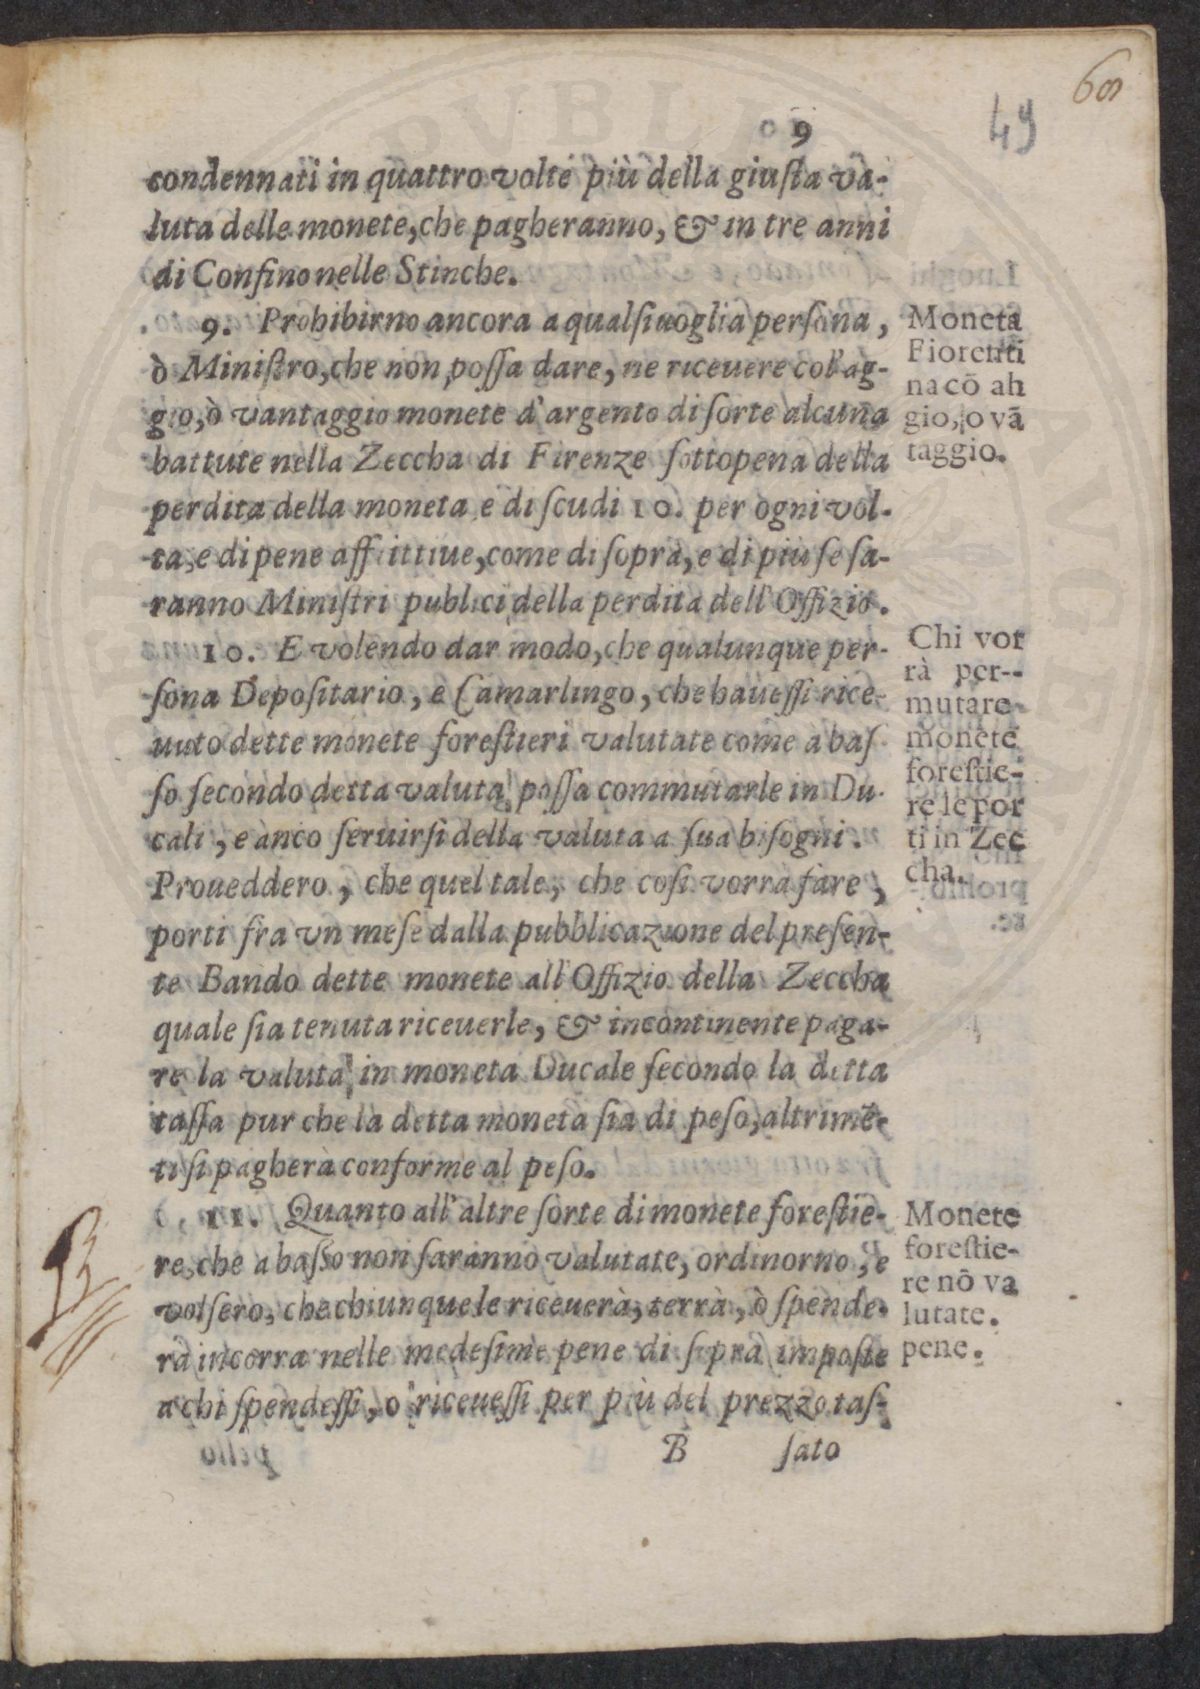 60
49
9
condennati in quattro volte più della giuſta va-
luta delle monete, che pagheranno, & in tre anni
di Confino nelle Stinche.
9. Prohibirno ancora a qualſiuoglia perſona,
ò Miniſtro, che non poſſa dare, ne riceuere col'ag-
gio, ò vantaggio monete d'argento di ſorte alcuna
battute nella Zeccha di Firenze ſottopena della
perdita della moneta e di ſcudi 10. per ogni vol-
ta, e di pene afflittiue, come di ſopra, e di piu ſe ſa-
ranno Miniſtri publici della perdita dell'Offizio.
Moneta
Fiorenti
na cõ ah
gio, o vã
taggio.
10. E volendo dar modo, che qualunque per-
ſona Depoſitario, e Camarlingo, che haueſſi rice-
uuto dette monete foreſtieri valutate come à baſ
ſo ſecondo detta valuta poſſa commutarle in Du-
cali, e anco ſeruirſi della valuta a ſua biſogni.
Proueddero, che quel tale, che coſi vorrà fare,
porti fra vn meſe dalla pubblicazione del preſen-
te Bando dette monete all'Offizio della Zeccha
quale ſia tenuta riceuerle, & incontinente paga-
re la valuta in moneta Ducale ſecondo la detta
taſſa pur che la detta moneta ſia di peſo, altrimẽ-
ti ſi pagherà conforme al peſo.
Chi vor
rà per--
mutare
monete
foreſtie-
re le por
ti in Zec
cha.
11. Quanto all'altre ſorte di monete foreſtie-
re, che abaſſo non ſaranno valutate, ordinorno, e
volſero, che chiunque le riceuerà, terrà, ò ſpende-
rà incorra nelle medeſime pene di ſopra impoſte
a chi ſpendeſſi, o riceueſſi per più del prezzo taſ-
Monete
foreſtie-
re nõ va
lutate.
pene.
B ſato